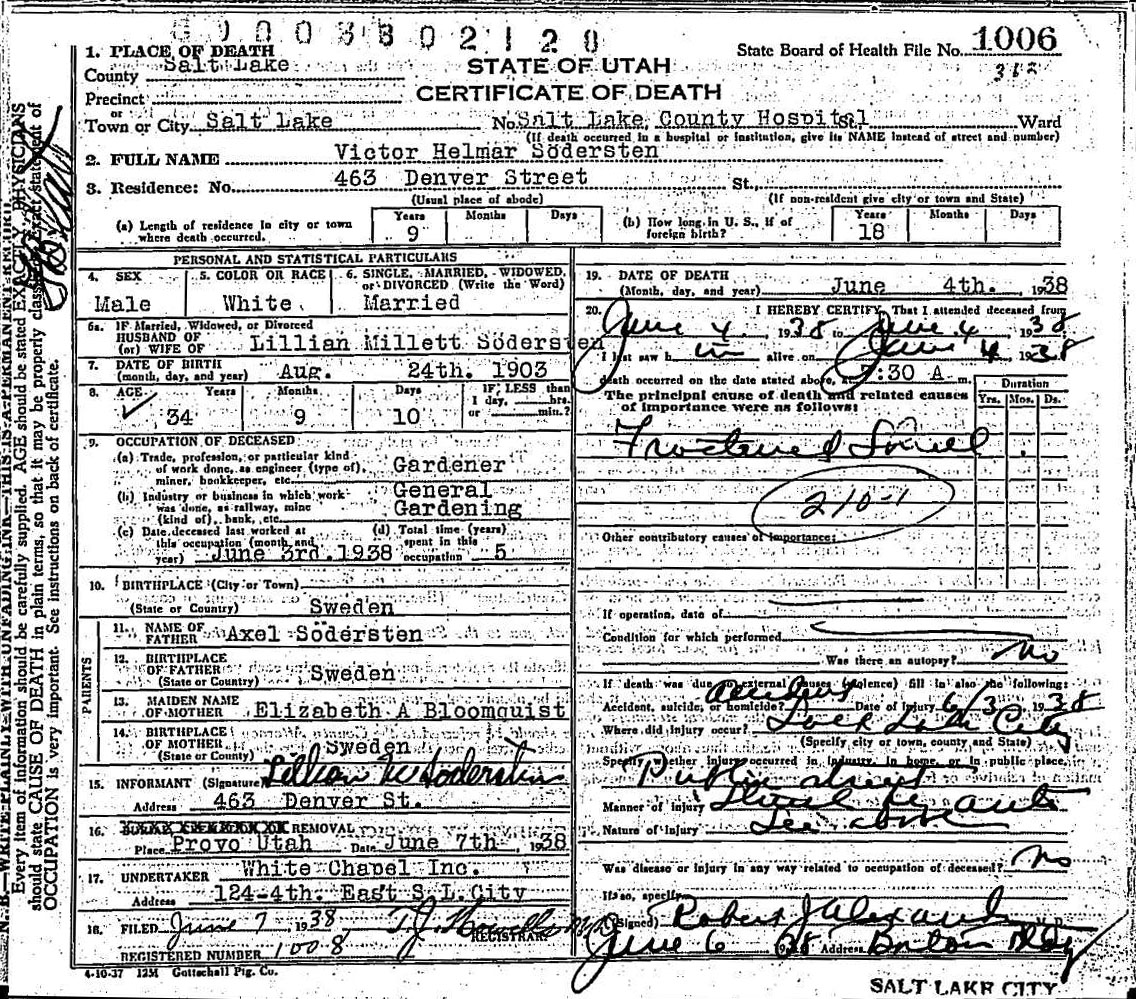 G 0 0 3 3 0 2 1 2 0
State Board of Health File No. 1006
312
1. PLACE OF DEATH
County Salt Lake
STATE OF UTAH
CERTIFICATE OF DEATH
Precinct
or
Town or City Salt Lake No. Salt Lake County Hospital St., Ward
(If death occurred in a hospital or institution, give its NAME instead of street and number)
2. FULL NAME Victor Helmar Södersten
3. Residence: No. 463 Denver Street St.,
(Usual place of abode) (If non-resident give city or town and State)
(a) Length of residence in city or town where death occurred. Years 9 Months Days
(b) How long in U. S., if of foreign birth? Years 18 Months Days
PERSONAL AND STATISTICAL PARTICULARS
4. SEX Male
5. COLOR OR RACE White
6. SINGLE, MARRIED, WIDOWED, or DIVORCED (Write the Word) Married
6a. If Married, Widowed, or Divorced
HUSBAND OF
(or) WIFE OF Lillian Millett Södersten
7. DATE OF BIRTH
(month, day, and year) Aug. 24th. 1903
8. AGE Years Months Days IF LESS than
1 day, hrs.
34 9 10 or min.?
9. OCCUPATION OF DECEASED
(a) Trade, profession, or particular kind
of work done, as engineer (type of), Gardener
miner, bookkeeper, etc.
(b) Industry or business in which work General
was done, as railway, mine Gardening
(kind of), bank, etc.
(c) Date deceased last worked at (d) Total time (years)
this occupation (month and spent in this
year) June 3rd. 1938 occupation 5
10. BIRTHPLACE (City or Town)
(State or Country) Sweden
PARENTS
11. NAME OF
FATHER Axel Södersten
12. BIRTHPLACE
OF FATHER Sweden
(State or Country)
13. MAIDEN NAME
OF MOTHER Elizabeth A Bloomquist
14. BIRTHPLACE
OF MOTHER Sweden
(State or Country)
15. INFORMANT (Signature) Lillian M Södersten
Address 463 Denver St.
16. REMOVAL
Place Provo Utah Date June 7th 1938
17. UNDERTAKER White Chapel Inc.
Address 124-4th. East S.L.City
18. FILED June 7 1938, T.J. Howells M.D.
REGISTRAR
REGISTERED NUMBER 1008
4-10-37 12M Gottschall Ptg. Co.
19. DATE OF DEATH
(Month, day, and year) June 4th. 1938
20. I HEREBY CERTIFY, That I attended deceased from
June 4 1938 to June 4 1938
I last saw him alive on June 4 1938
death occurred on the date stated above, at 7:30 A m.
The principal cause of death and related causes
of importance were as follows:
Duration
Yrs. Mos. Ds.
Fractured
210-1
Other contributory causes of importance:
If operation, date of
Condition for which performed
Was there an autopsy? No
If death was due to external causes (violence) fill in also the following:
Accident, suicide, or homicide? Accident Date of Injury 6/3 1938
Where did injury occur? Salt Lake City
(Specify city or town, county and State)
Specify whether injury occurred in industry, in home, or in public place.
Public street
Manner of injury Struck by auto
Nature of injury See above
Was disease or injury in any way related to occupation of deceased? No
If so, specify
(Signed) Robert J Alexander M.D.
June 6 1938 Address Boston Bldg
SALT LAKE CITY
N. B.—WRITE PLAINLY WITH UNFADING INK—THIS IS A PERMANENT RECORD.
Every item of information should be carefully supplied. AGE should be stated EXACTLY. PHYSICIANS
should state CAUSE OF DEATH in plain terms, so that it may be properly classified. Exact statement of
OCCUPATION is very important. See instructions on back of certificate.